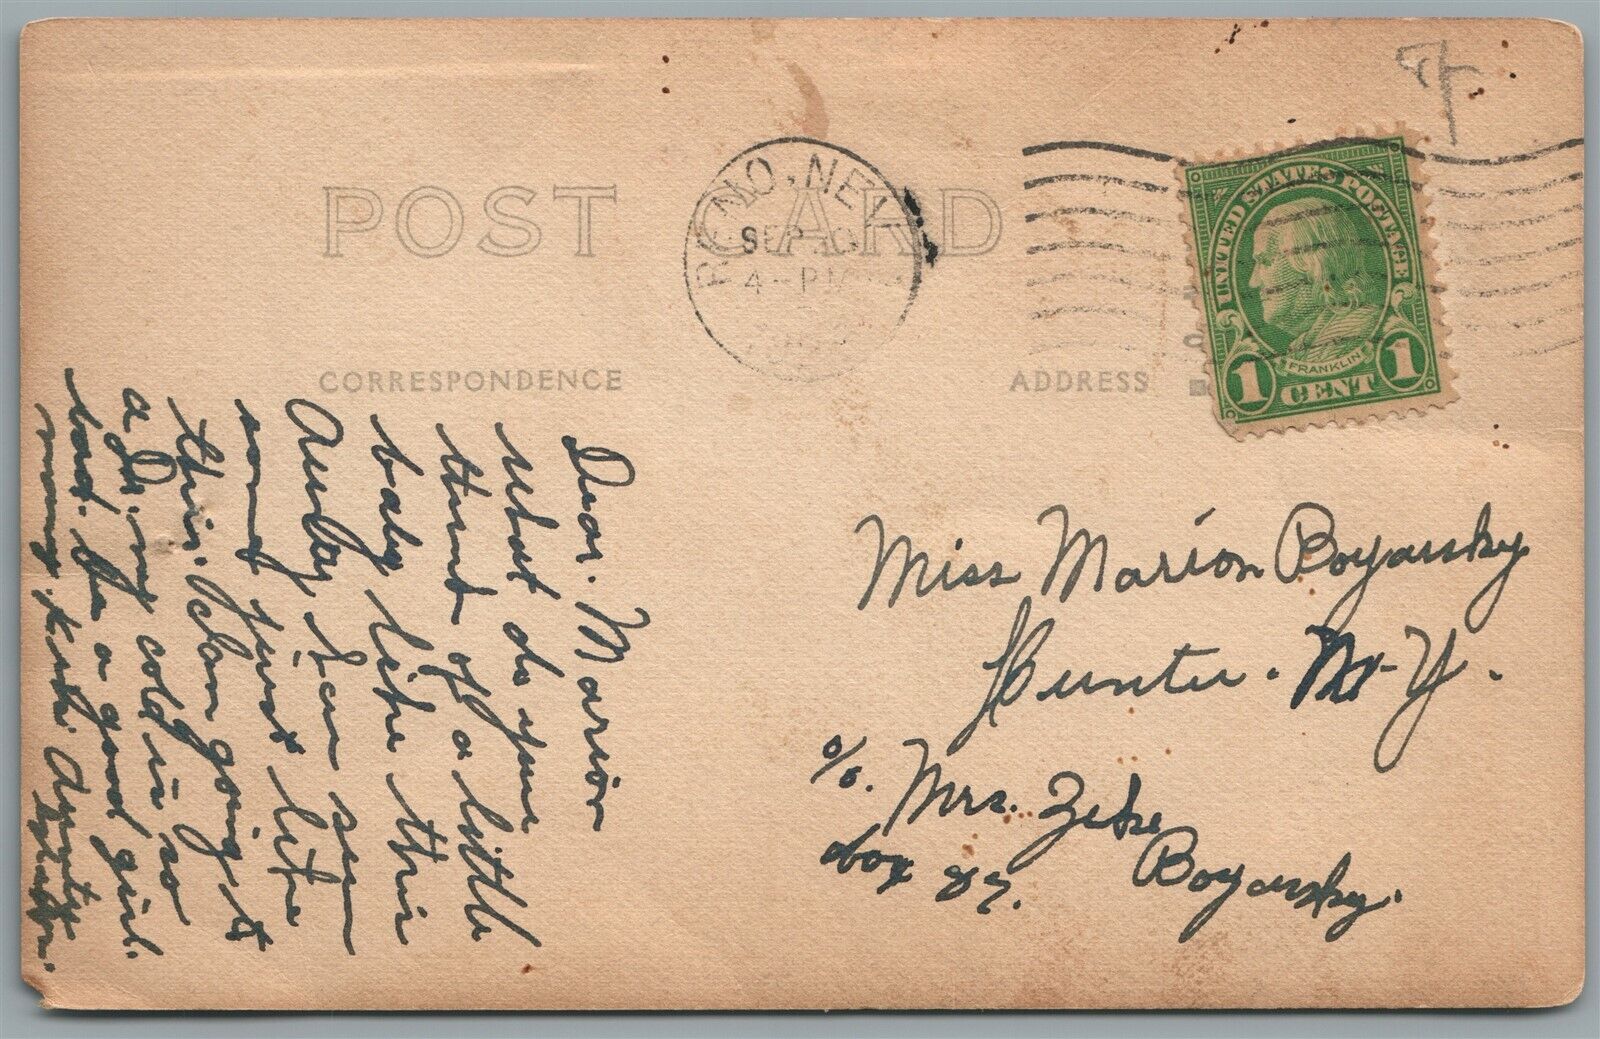 POST CARD
RENO, NEV.
SEP 10
4 - PM
UNITED STATES POSTAGE
FRANKLIN
1 CENT 1
CORRESPONDENCE
ADDRESS
Dear. Marion
what do you
think of a little
baby like this
Aunty, I am
and just like
this. I am going to
a Dr. my cold is so
bad. be a good girl.
many kisses. Aunty
Miss Marion Boyarsky
Hunter. N-Y.
c/o. Mrs. Zeke
Boyarsky.
box 87.